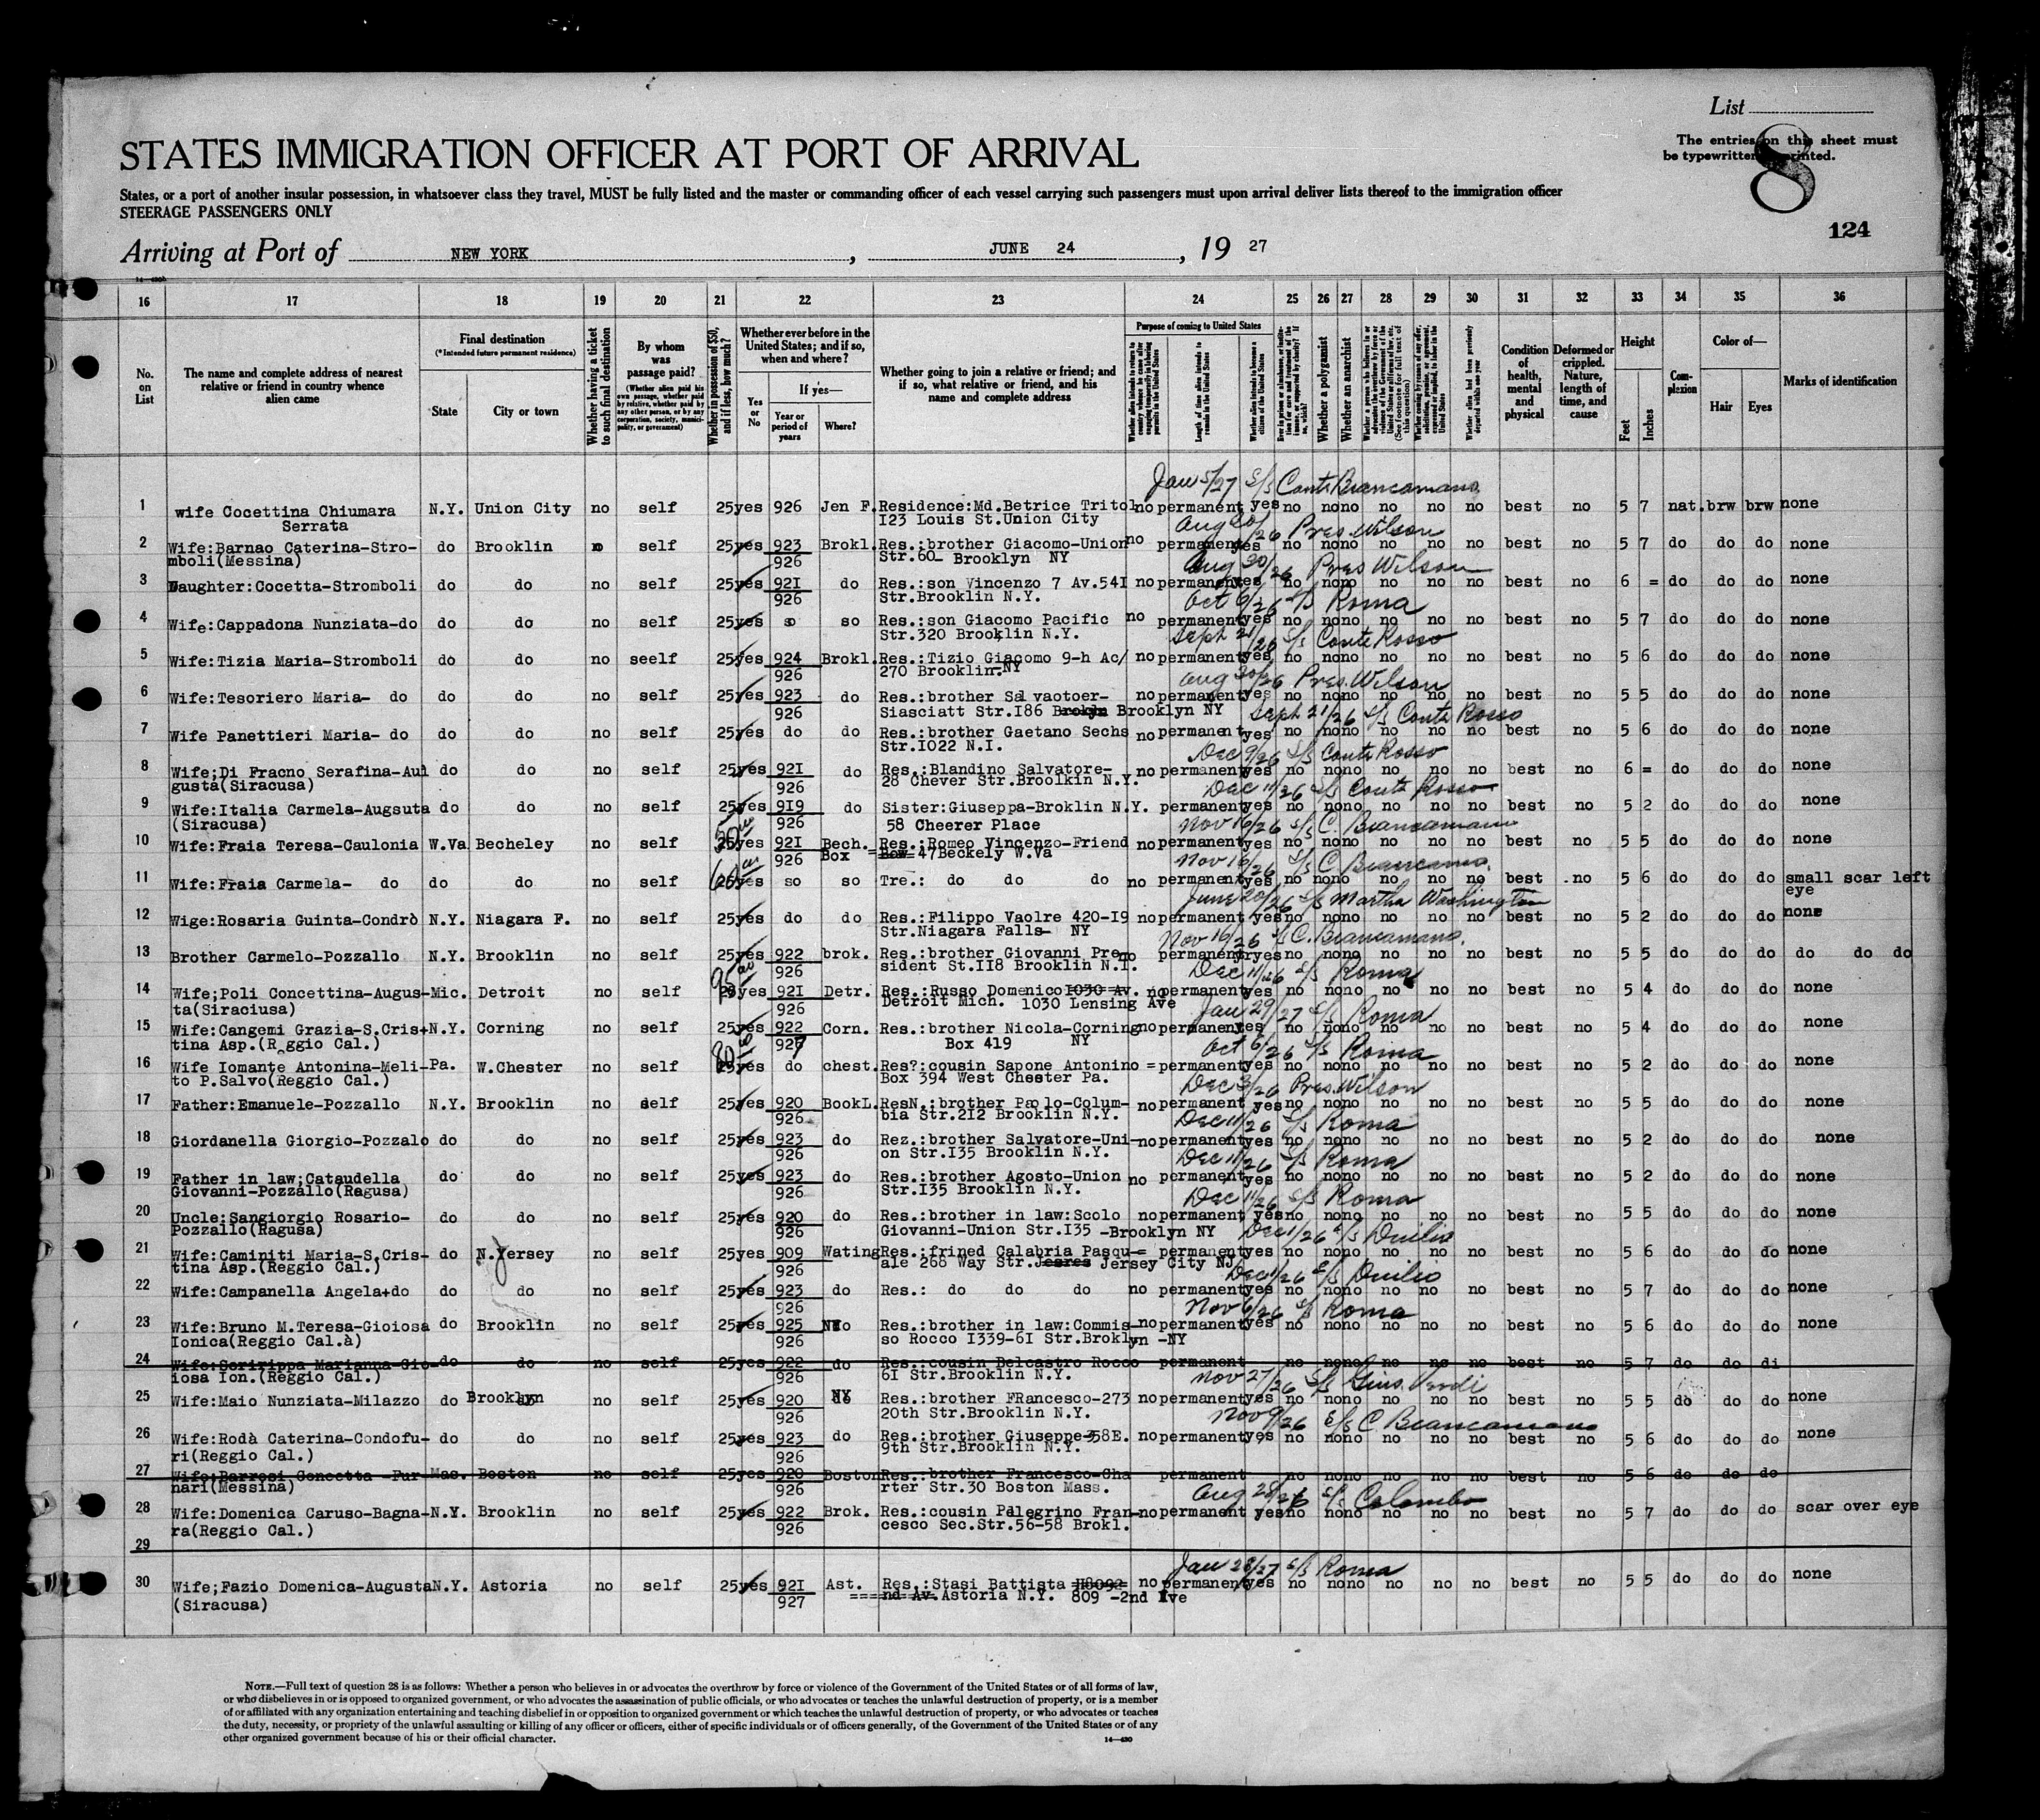 List
The entries on this sheet must
be typewritten or printed.
8
124
STATES IMMIGRATION OFFICER AT PORT OF ARRIVAL
States, or a port of another insular possession, in whatsoever class they travel, MUST be fully listed and the master or commanding officer of each vessel carrying such passengers must upon arrival deliver lists thereof to the immigration officer
STEERAGE PASSENGERS ONLY
Arriving at Port of NEW YORK, JUNE 24, 19 27
16 17 18 19 20 21 22 23 24 25 26 27 28 29 30 31 32 33 34 35 36
No. on List
The name and complete address of nearest relative or friend in country whence alien came
Final destination
(*Intended future permanent residence)
State
City or town
Whether having a ticket to such final destination
By whom was passage paid?
(Whether alien paid his own passage, whether paid by relative, whether paid by any other person, or by any corporation, society, municipality, or government)
Whether in possession of $50, and if less, how much?
Whether ever before in the United States; and if so, when and where?
Yes or No
If yes—
Year or period of years
Where?
Whether going to join a relative or friend; and if so, what relative or friend, and his name and complete address
Purpose of coming to United States
Whether a polygamist
Whether an anarchist
Condition of health, mental and physical
Deformed or crippled. Nature, length of time, and cause
Height
Feet
Inches
Complexion
Color of—
Hair
Eyes
Marks of identification
Jan 5/27 S/S Conte Biancamano
1 wife Cocettina Chiumara N.Y. Union City no self 25 yes 926 Jen F. Residence:Md.Betrice Tritol no permanent yes no no no no no no best no 5 7 nat. brw brw none
Serrata I23 Louis St.Union City
Aug 30/26 Pres. Wilson
2 Wife:Barnao Caterina-Stro- do Brooklin no self 25 yes 923 Brokl. Res.:brother Giacomo-Union no permanent yes no no no no no no best no 5 7 do do do none
mboli(Messina) 926 Str.60_ Brooklyn NY
Aug 30/26 Pres Wilson
3 Daughter:Cocetta-Stromboli do do no self 25 yes 92I do Res.:son Vincenzo 7 Av.54I no permanent yes no no no no no no best no 6 = do do do none
926 Str.Brooklin N.Y.
Oct 6/26 S/S Roma
4 Wife:Cappadona Nunziata-do do do no self 25 yes so so Res.:son Giacomo Pacific no permanent yes no no no no no no best no 5 7 do do do none
Str.320 Brooklin N.Y.
Sept 21/26 S/S Conte Rosso
5 Wife:Tizia Maria-Stromboli do do no seelf 25 yes 924 Brokl. Res.:Tizio Giacomo 9-h Ac/ no permanent yes no no no no no no best no 5 6 do do do none
926 270 Brooklin.NY
Aug 30/26 Pres. Wilson
6 Wife:Tesoriero Maria- do do do no self 25 yes 923 do Res.:brother Salvaotoer- no permanent yes no no no no no no best no 5 5 do do do none
926 Siasciatt Str.I86 Brokyn Brooklyn NY
Sept 21/26 S/S Conte Rosso
7 Wife Panettieri Maria- do do do no self 25 yes do do Res.:brother Gaetano Sechs no permanent yes no no no no no no best no 5 6 do do do none
Str.IO22 N.I.
Dec 9/26 S/S Conte Rosso
8 Wife;Di Fracno Serafina-Aui do do no self 25 yes 92I do Res.:Blandino Salvatore- no permanent yes no no no no no no best no 6 = do do do none
gusta(Siracusa) 926 28 Chever Str.Broolkin N.Y.
Dec 11/26 S/S Conte Rosso
9 Wife:Italia Carmela-Augsuta do do no self 25 yes 9I9 do Sister:Giuseppa-Broklin N.Y. permanent yes no no no no no no best no 5 2 do do do none
(Siracusa) 926 58 Cheerer Place
Nov 16/26 S/S C. Biancamano
10 Wife:Fraia Teresa-Caulonia W.Va Becheley no self yes 92I Bech. Res.:Romeo Vincenzo-Friend no permanent yes no no no no no no best no 5 5 do do do none
926 Box 47Beckely W.Va
Nov 16/26 S/S C. Biancamano
11 Wife:Fraia Carmela- do do do no self yes so so Tre.: do do do no permanent yes no no no no no no best no 5 6 do do do small scar left
eye
June 20/26 S/S Martha Washington
12 Wige:Rosaria Guinta-Condrò N.Y. Niagara F. no self 25 yes do do Res.:Filippo Vaolre 420-I9 no permanent yes no no no no no no best no 5 2 do do do none
Str.Niagara Falls- NY
Nov 16/26 S/S C. Biancamano.
13 Brother Carmelo-Pozzallo N.Y. Brooklin no self 25 yes 922 brok. Res.:brother Giovanni Pre- no permanent yes no no no no no no best no 5 5 do do do do do do
926 sident St.II8 Brooklin N.I.
Dec 11/26 S/S Roma
14 Wife;Poli Concettina-Augus- Mic. Detroit no self yes 92I Detr. Res.:Russo Domenico 1030 Av. no permanent yes no no no no no no best no 5 4 do do do none
ta(Siraciusa) 926 Detroit Mich. 1030 Lensing Ave
Jan 29/27 S/S Roma
15 Wife:Cangemi Grazia-S.Cris+ N.Y. Corning no self 25 yes 922 Corn. Res.:brother Nicola-Corning no permanent yes no no no no no no best no 5 4 do do do none
tina Asp.(R ggio Cal.) 927 Box 419 NY
Oct 6/26 S/S Roma
16 Wife Iomante Antonina-Meli- Pa. W.Chester no self yes do chest. Res?:cousin Sapone Antonino = permanent yes no no no no no no best no 5 2 do do do none
to P.Salvo(Reggio Cal.) Box 394 West Chester Pa.
Dec 3/26 Pres. Wilson
17 Father:Emanuele-Pozzallo N.Y. Brooklin no self 25 yes 920 BookL. ResN.:brother Paolo-Colum- no permanent yes no no no no no no best no 5 5 do do do none
926 bia Str.2I2 Brooklin N.Y.
Dec 11/26 S/S Roma
18 Giordanella Giorgio-Pozzalo do do no self 25 yes 923 do Rez.:brother Salvatore-Uni- no permanent yes no no no no no no best no 5 2 do do do none
926 on Str.I35 Brooklin N.Y.
Dec 11/26 S/S Roma
19 Father in law;Cataudella do do no self 25 yes 923 do Res.:brother Agosto-Union no permanent yes no no no no no no best no 5 2 do do do none
Giovanni-Pozzallo(Ragusa) 926 Str.I35 Brooklin N.Y.
Dec 11/26 S/S Roma
20 Uncle:Sangiorgio Rosario- do do no self 25 yes 920 do Res.:brother in law:Scolo no permanent yes no no no no no no best no 5 5 do do do none
Pozzallo(Ragusa) 926 Giovanni-Union Str.I35 -Brooklyn NY
Dec 1/26 S/S Duilio
21 Wife:Caminiti Maria-S.Cris- do N.Jersey no self 25 yes 909 Wating Res.;frined Calabria Pasqu-= permanent yes no no no no no no best no 5 6 do do do none
tina Asp.(Reggio Cal.) 926 ale 268 Way Str.Jesres Jersey City NJ
Dec 1/26 S/S Duilio
22 Wife:Campanella Angela+do do do no self 25 yes 923 do Res.: do do do no permanent yes no no no no no no best no 5 7 do do do none
926
Nov 6/26 S/S Roma
23 Wife:Bruno M.Teresa-Gioiosa do Brooklin no self 25 yes 925 Res.:brother in law:Commis- no permanent yes no no no no no no best no 5 6 do do do none
Ionica(Reggio Cal.à) 926 so Rocco I339-6I Str.Broklyn -NY
24 Wife:Scririppa Marianna-Gio- do do no self 25 yes 922 do Res.:cousin Belcastro Rocco permanent no no no no no no best no 5 7 do do di
iosa Ion.(Reggio Cal.) 926 6I Str.Brooklin N.Y.
Nov 27/26 S/S Gius. Verdi
25 Wife:Maio Nunziata-Milazzo do Brooklyn no self 25 yes 920 NY Res.:brother FRancesco-273 no permanent yes no no no no no no best no 5 5 do do do none
926 20th Str.Brooklin N.Y.
Nov 9/26 S/S C Biancamano
26 Wife:Rodà Caterina-Condofu- do do no self 25 yes 923 do Res.:brother Giuseppe-358E. no permanent yes no no no no no no best no 5 6 do do do none
ri(Reggio Cal.) 926 9th Str.Brooklin N.Y.
27 Wife:Barresi Concetta -Fur- Mas. Boston no self 25 yes 920 Boston Res.:brother Francesco-Cha permanent no no no no no no best no 5 6 do do do
nari(Messina) 926 rter Str.30 Boston Mass.
Aug 28/26 S/S Colombo
28 Wife:Domenica Caruso-Bagna- N.Y. Brooklin no self 25 yes 922 Brok. Res.:cousin Pelegrino Fran- no permanent yes no no no no no no best no 5 7 do do do scar over eye
ra(Reggio Cal.) 926 cesco Sec.Str.56-58 Brokl.
29
Jan 28/27 S/S Roma
30 Wife;Fazio Domenica-Augusta N.Y. Astoria no self 25 yes 92I Ast. Res.:Stasi Battista no permanent yes no no no no no no best no 5 5 do do do none
(Siracusa) 927 nd Av.Astoria N.Y. 809 -2nd Ave
NOTE.—Full text of question 28 is as follows: Whether a person who believes in or advocates the overthrow by force or violence of the Government of the United States or of all forms of law,
or who disbelieves in or is opposed to organized government, or who advocates the assassination of public officials, or who advocates or teaches the unlawful destruction of property, or is a member
of or affiliated with any organization entertaining and teaching disbelief in or opposition to organized government or which teaches the unlawful destruction of property, or who advocates or teaches
the duty, necessity, or propriety of the unlawful assaulting or killing of any officer or officers, either of specific individuals or of officers generally, of the Government of the United States or of any
other organized government because of his or their official character.
14—430